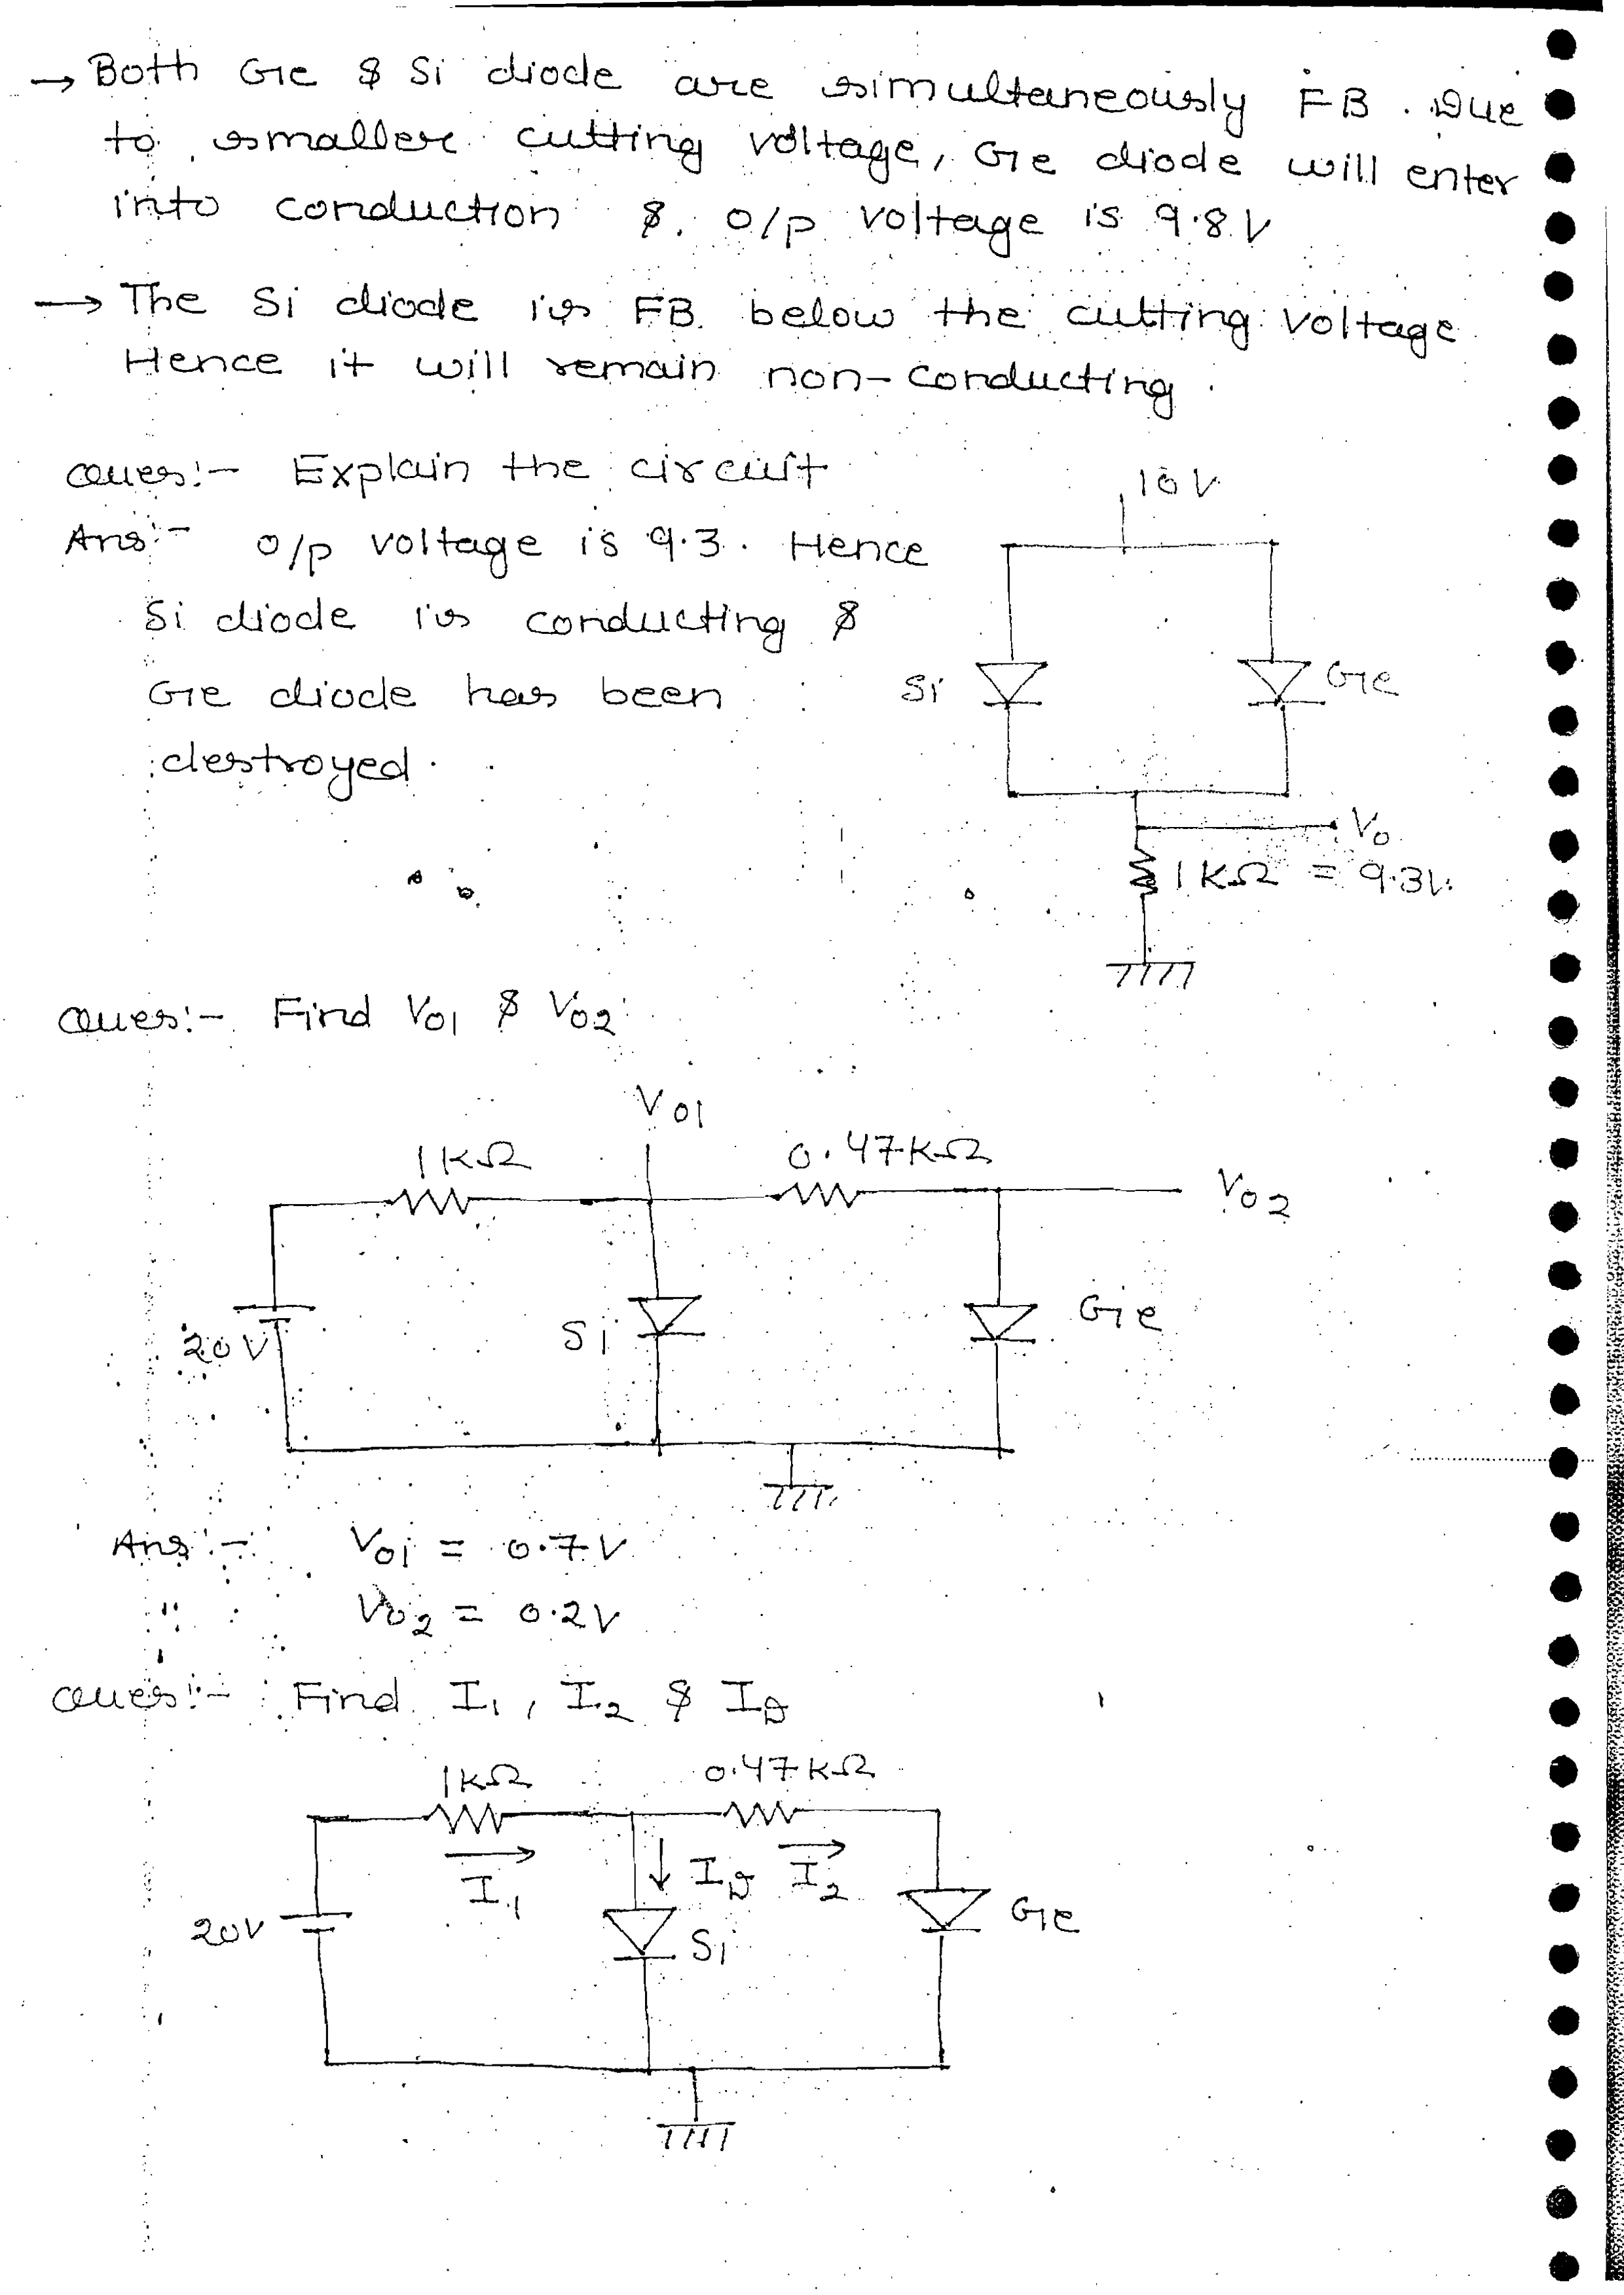 → Both Ge & Si diode are simultaneously FB. Due
to smaller cutting voltage, Ge diode will enter
into conduction & o/p voltage is 9.8V
→ The Si diode is FB below the cutting voltage
Hence it will remain non-conducting.
Ques:- Explain the circuit
10V
Ans:- o/p voltage is 9.3. Hence
Si diode is conducting &
Ge diode has been
destroyed.
Si
Ge
Vo
1KΩ = 9.3V
Ques:- Find Vo1 & Vo2
Vo1
1KΩ
0.47KΩ
Vo2
20V
Si
Ge
Ans:- Vo1 = 0.7V
Vo2 = 0.2V
Ques:- Find I1, I2 & ID
1KΩ
0.47KΩ
I1
ID
I2
20V
Si
Ge